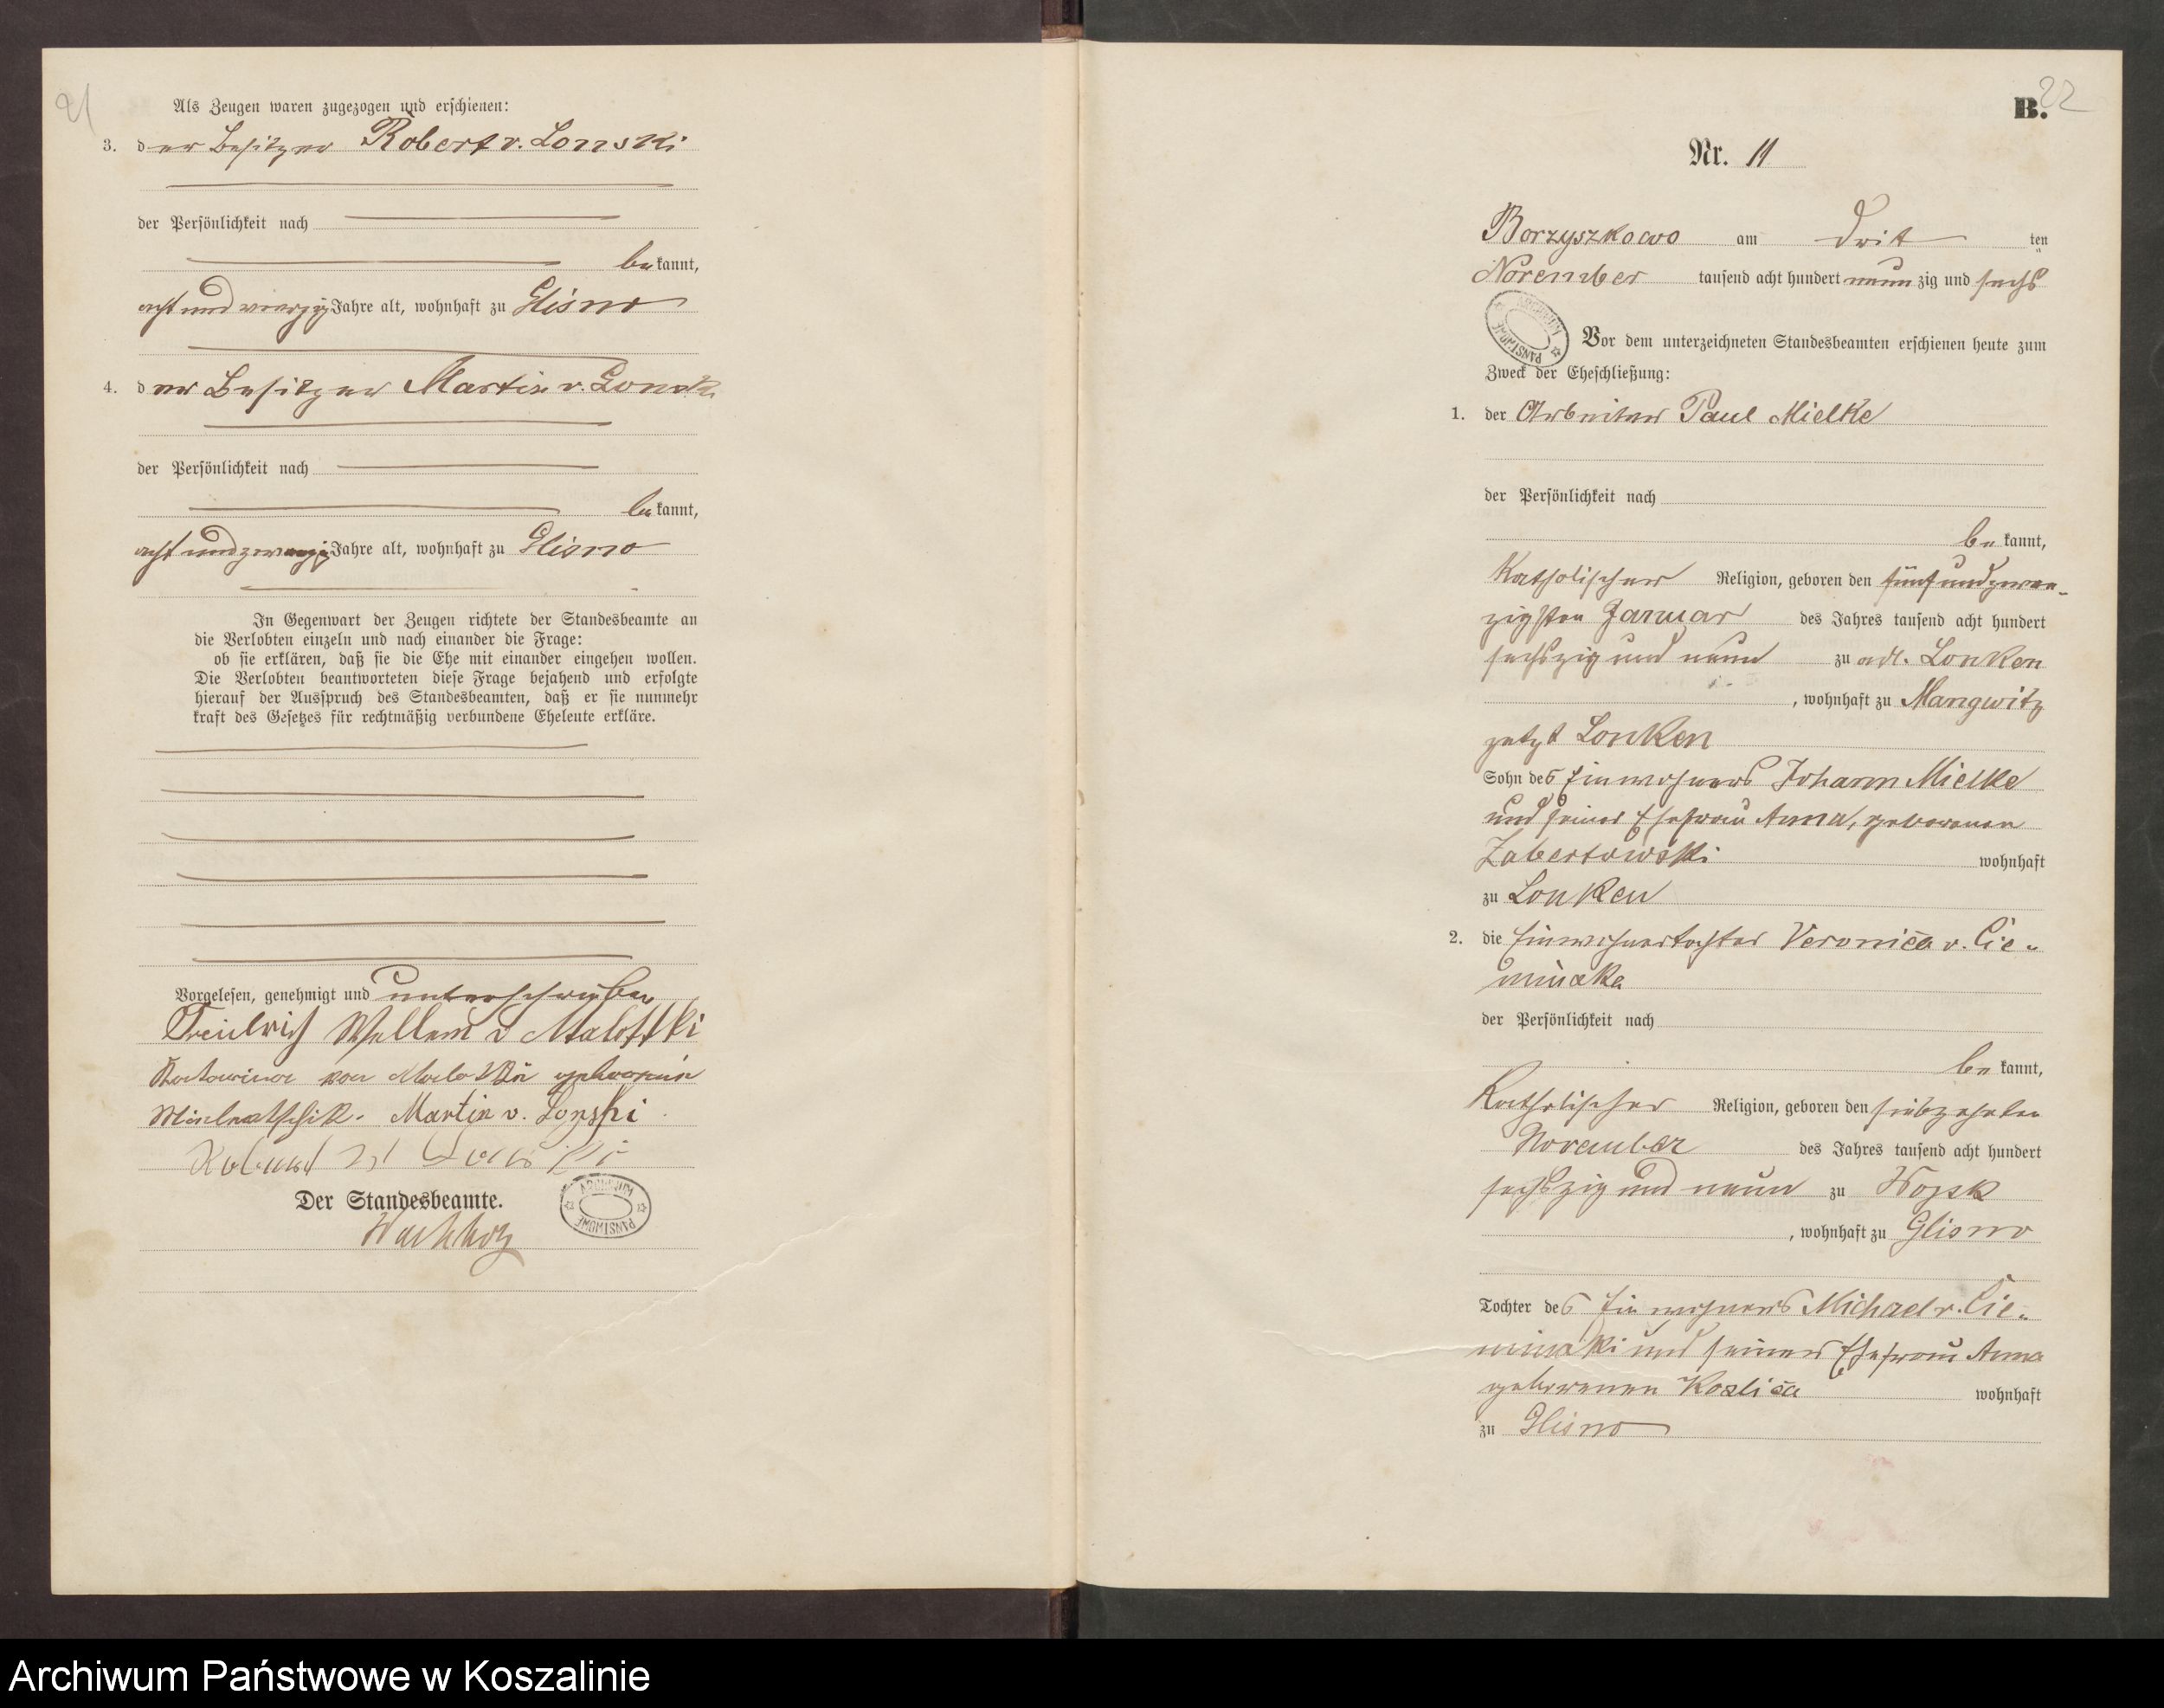 21
Als Zeugen waren zugezogen und erschienen:
3. der Besitzer Robert v. Lonski
der Persönlichkeit nach
bekannt,
acht und vierzig Jahre alt, wohnhaft zu Glisno
4. der Besitzer Martin v. Lonski
der Persönlichkeit nach
bekannt,
acht und zwanzig Jahre alt, wohnhaft zu Glisno
In Gegenwart der Zeugen richtete der Standesbeamte an
die Verlobten einzeln und nach einander die Frage:
ob sie erklären, daß sie die Ehe mit einander eingehen wollen.
Die Verlobten beantworteten diese Frage bejahend und erfolgte
hierauf der Ausspruch des Standesbeamten, daß er sie nunmehr
kraft des Gesetzes für rechtmäßig verbundene Eheleute erkläre.
Vorgelesen, genehmigt und unterschrieben
v Malottki
von geborene
Martin v. Lonski
Der Standesbeamte.
ARCHIWUM PAŃSTWOWE
B. 22
Nr. 11
Borzyszkowo am Dritten
November tausend acht hundert neunzig und sechs
ARCHIWUM PAŃSTWOWE
Vor dem unterzeichneten Standesbeamten erschienen heute zum
Zweck der Eheschließung:
1. der Arbeiter Paul Mielke
der Persönlichkeit nach
bekannt,
Katholischer Religion, geboren den fünfundzwan-
zigsten Januar des Jahres tausend acht hundert
sechszig und neun zu adl. Lonken
, wohnhaft zu Mangwitz
jetzt Lonken
Sohn des Einwohners Johann Mielke
und seiner Ehefrau Anna, geborenen
Zabertowski wohnhaft
zu Lonken
2. die Einwohnertochter Veronica v. Cie-
minska
der Persönlichkeit nach
bekannt,
Katholischer Religion, geboren den siebzehnten
November des Jahres tausend acht hundert
sechszig und neun zu Wojsk
, wohnhaft zu Glisno
Tochter des Einwohners Michael v. Cie-
minski und seiner Ehefrau Anna
geborenen wohnhaft
zu Glisno
Archiwum Państwowe w Koszalinie